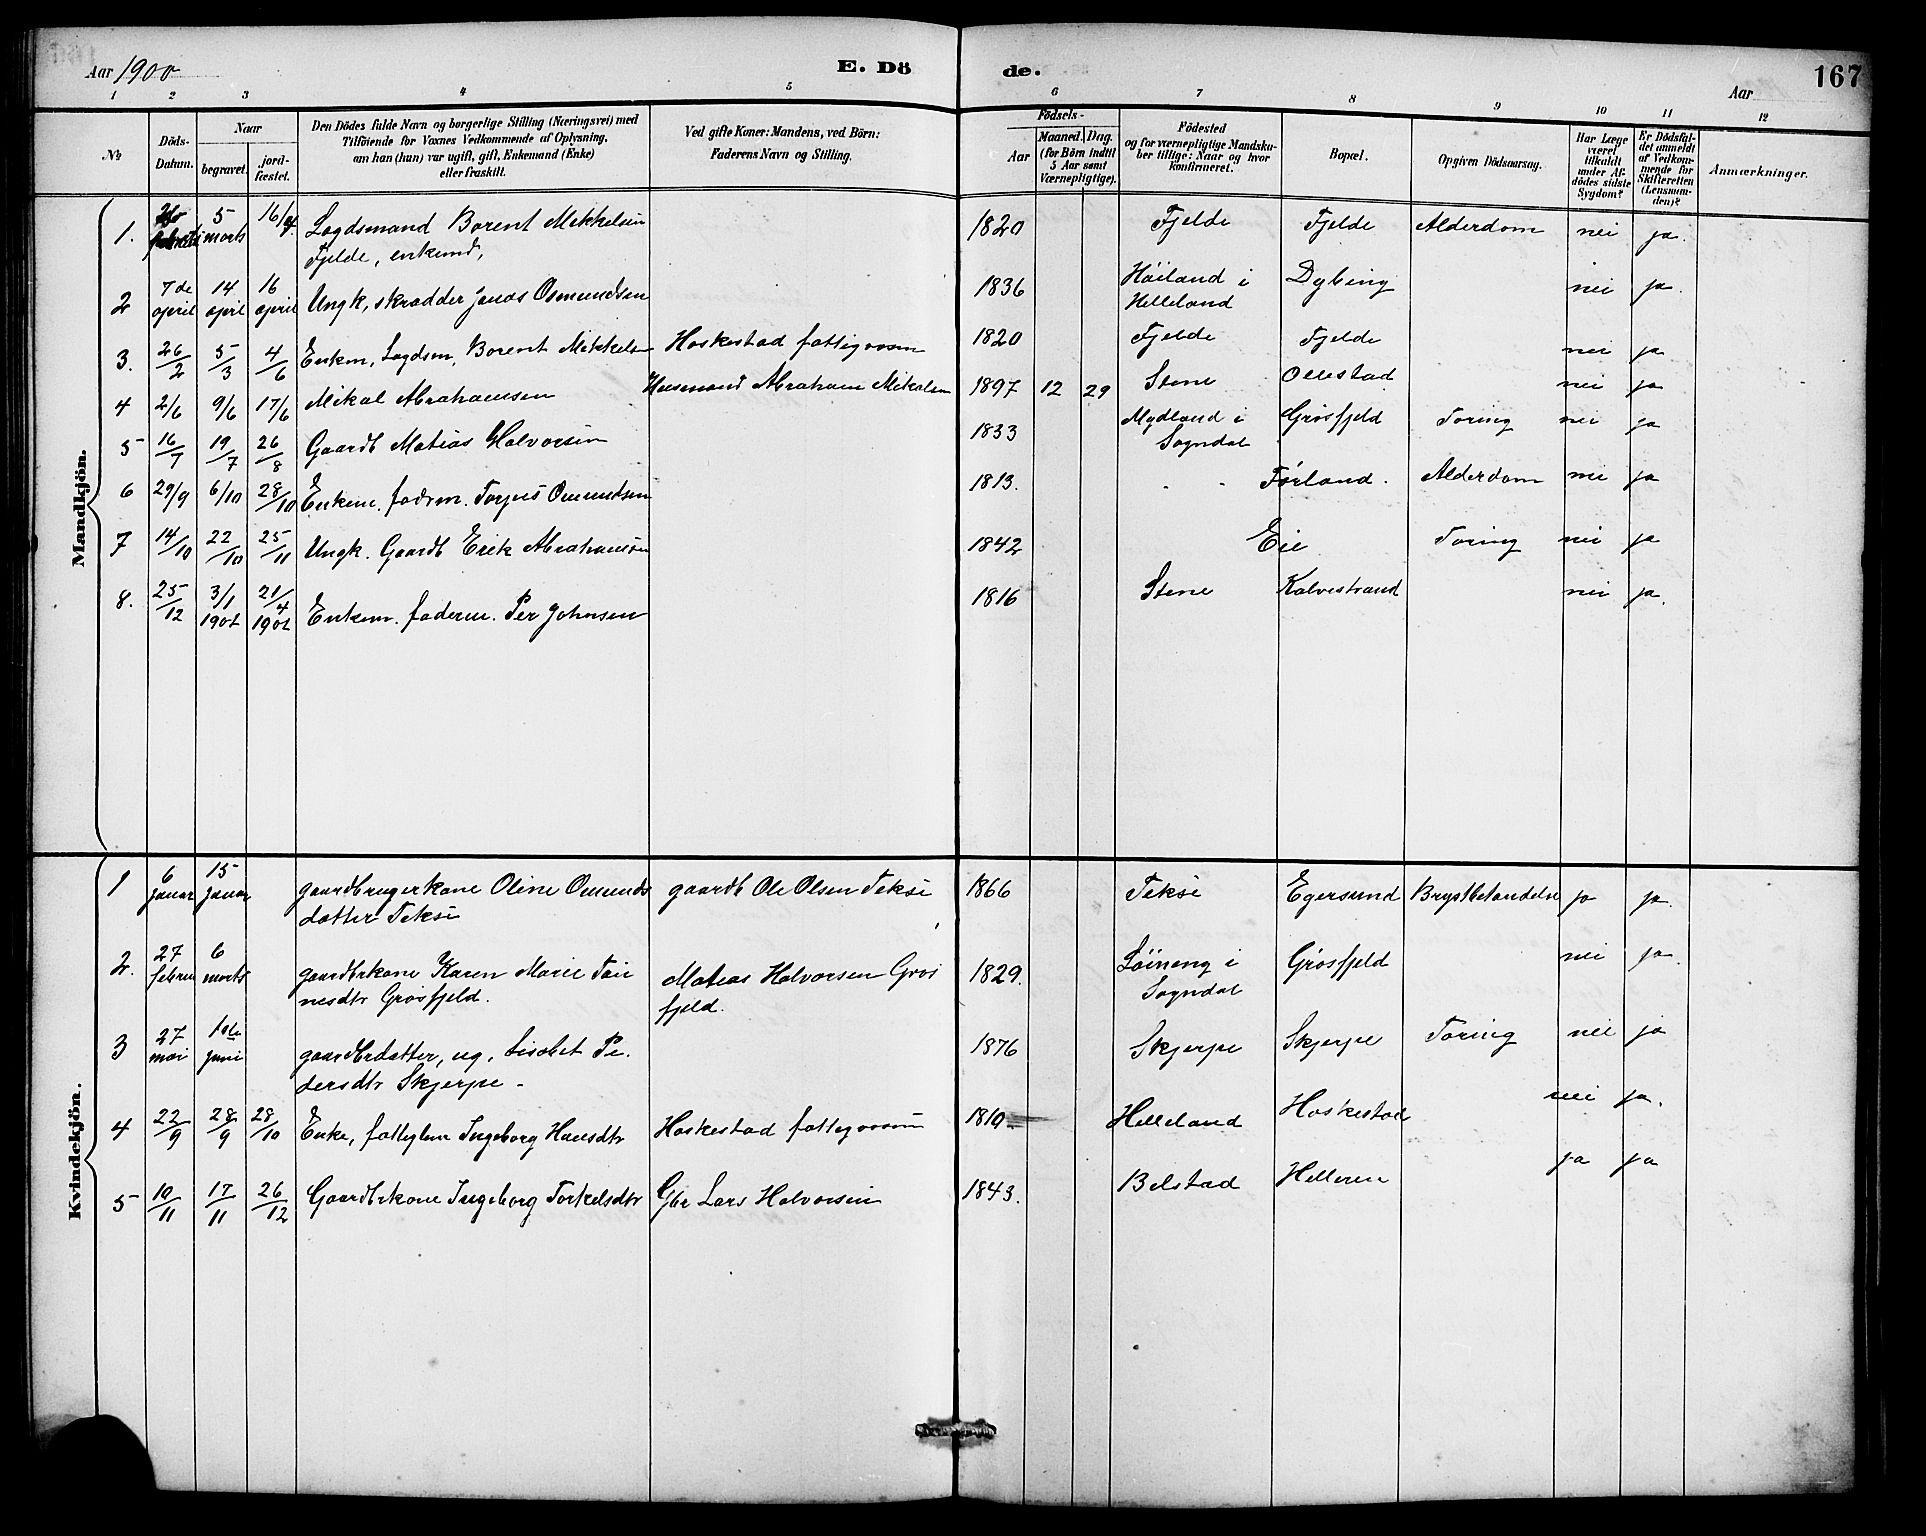 Aar 1900 E. Dö de. Aar 167
1 2 3 4 5 6 7 8 9 10 11 12
№ Döds-Datum. Naar begravet. jordfæstet. Den Dödes fulde Navn og borgerlige Stilling (Næringsvei) med Tilföiende for Voxnes Vedkommende af Oplysning, om han (hun) var ugift, gift, Enkemand (Enke) eller fraskilt. Ved gifte Koner: Mandens, ved Börn: Faderens Navn og Stilling. Födsels- Aar Maaned. Dag. (for Börn indtil 5 Aar samt Værnepligtige). Födested og for værnepligtige Mandskaber tillige: Naar og hvor konfirmeret. Bopæl. Opgiven Dödsaarsag. Har Læge været tilkaldt under Afdödes sidste Sygdom? Er Dödsfaldet anmeldt af Vedkommende for Skifteretten (Lensmanden)? Anmærkninger.
Mandkjön.
1. 5 marts 16/4 Lægdsmand Borent Mikkelsen 1820 Fjelde Fjelde Alderdom nei ja.
Fjelde, enkemd,
2 7de april 14 april 16 april Ungk, skrædder Jonas Osmundsen 1836 Höiland i Helleland Dybing nei ja.
3. 26/2 5/3 4/6 Enkm, Lægdsm, Borent Mikkelsen Heskestad fattigvæsen 1820 Fjelde Fjelde nei ja
4 2/6 9/6 17/6 Mikal Abrahamsen Huusmand Abraham Mikalsen 1897 12 29 Stene Ollestad nei ja
5 16/7 19/7 26/8 Gaardb Matias Halvorsen 1833 Mydland i Sogndal Grøsfjeld Tæring nei ja
6 29/9 6/10 28/10 Enkem. føderm. Torjus Omundsen 1813. " " Førland. Alderdom nei ja
7 14/10 22/10 25/11 Ungk. Gaardb Erik Abrahamsen 1842 Eie Tæring nei ja
8. 25/12 3/1 1901 21/4 1901 Enkem. føderm. Per Johnsen 1816 Stene Kalvestrand nei ja.
Kvindekjön.
1 6 januar 15 januar gaardbrugerkone Oline Omunds gaardb Ole Olsen Tekse 1866 Teksé Egersund Brystbetændelse ja ja.
datter Teksé
2. 27 februar 6 marts gaardbrkone Karen Marie Tøn Matias Halvorsen Grøs 1829. Löineng i Sogndal Grøsfjeld nei ja.
nesdtr Grøsfjeld. fjeld.
3 27 mai 1ste juni gaardbrdatter, ug, Lisabet Pe. 1876 Skjerpe Skjerpe Tæring nei ja
dersdtr Skjerpe -
4 22/9 28/9 28/10 Enke, fattiglem Ingeborg Hansdtr Heskestad fattigvæsen 1810 Helleland Heskestad nei ja.
5 10/11 17/11 26/12 Gaardbrkone Ingeborg Torkelsdtr Gbr Lars Halvorsen 1843. Bilstad Helleren ja ja